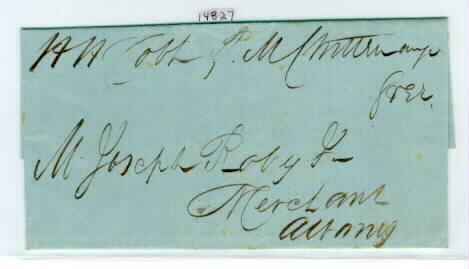 14827
H H Cobb P. M.
Free.
Mr Joseph Roby Jr
Merchant
Albany